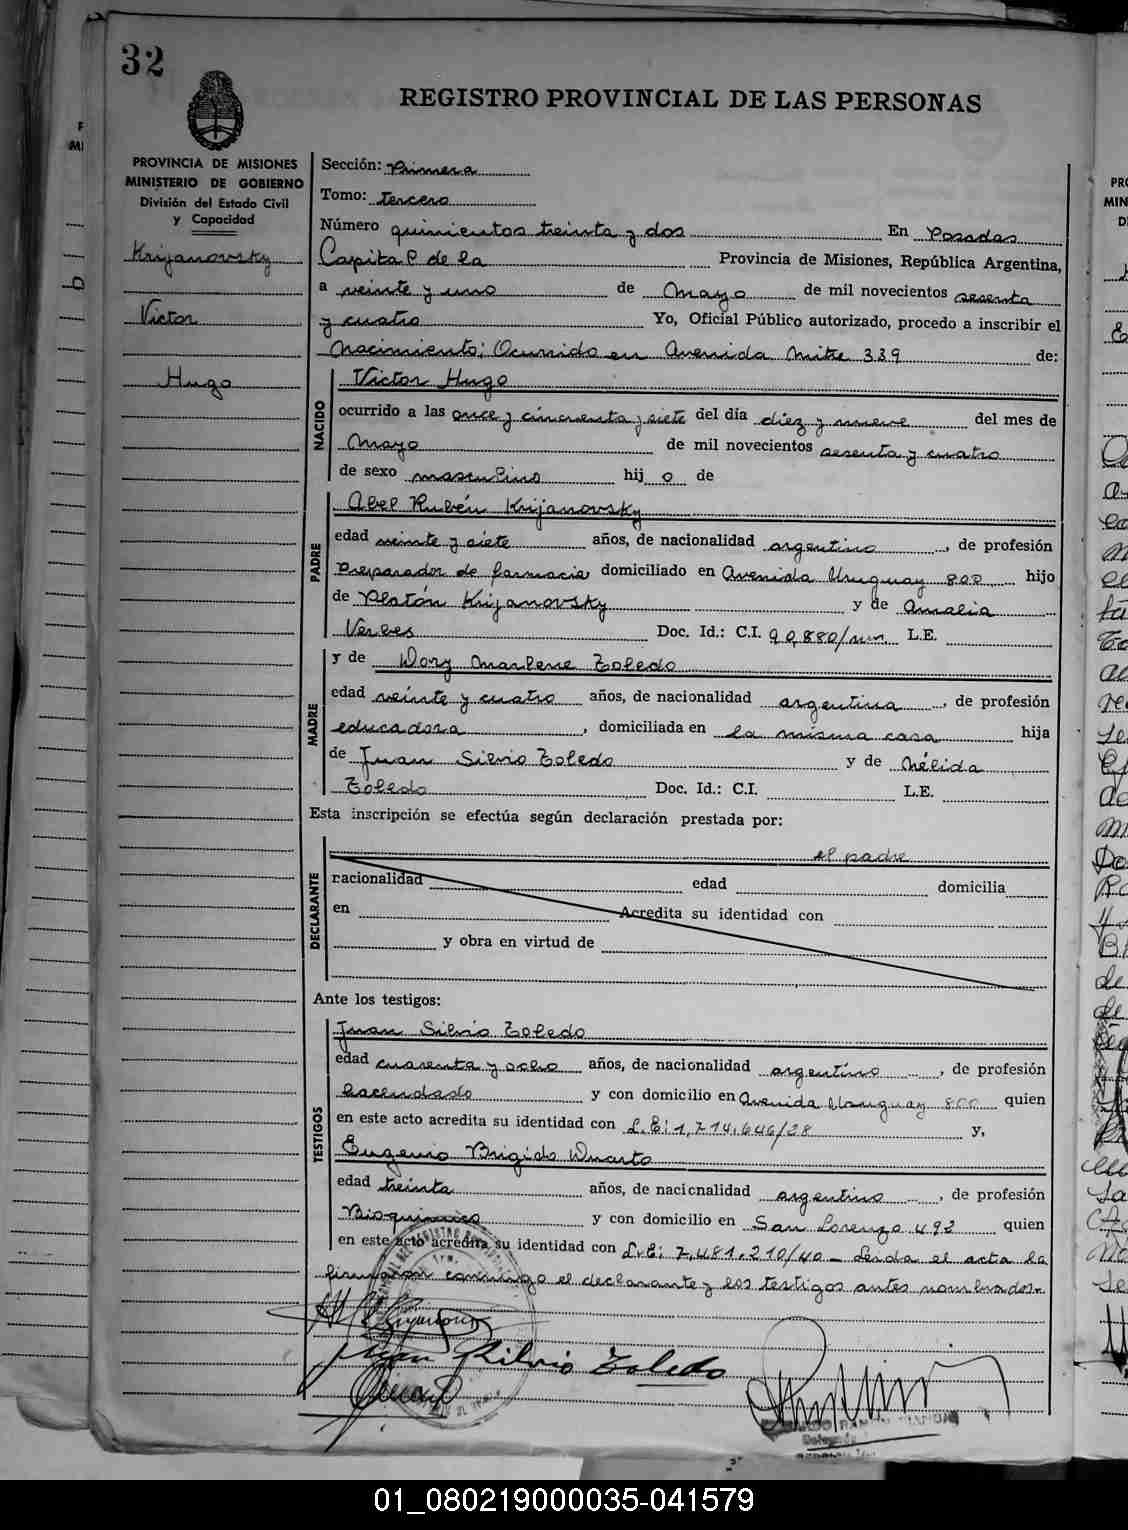 32
REGISTRO PROVINCIAL DE LAS PERSONAS
PROVINCIA DE MISIONES
MINISTERIO DE GOBIERNO
División del Estado Civil
y Capacidad
Krijanovsky
Victor
Hugo
Sección: Primera
Tomo: tercero
Número quinientos treinta y dos En Posadas
Capital de la Provincia de Misiones, República Argentina,
a veinte y uno de Mayo de mil novecientos sesenta
y cuatro Yo, Oficial Público autorizado, procedo a inscribir el
Nacimiento; Ocurrido en Avenida Mitre 339 de:
NACIDO
Victor Hugo
ocurrido a las once y cincuenta y siete del día diez y nueve del mes de
Mayo de mil novecientos sesenta y cuatro
de sexo masculino hij o de
PADRE
Abel Rubén Krijanovsky
edad veinte y siete años, de nacionalidad argentino, de profesión
Preparador de farmacia domiciliado en Avenida Uruguay 800 hijo
de Platón Krijanovsky y de Amalia
Verbes Doc. Id.: C.I. 90,880/ L.E.
MADRE
y de Dory Marlene Toledo
edad veinte y cuatro años, de nacionalidad argentina, de profesión
educadora, domiciliada en la misma casa hija
de Juan Silvio Toledo y de Nélida
Toledo Doc. Id.: C.I. L.E.
Esta inscripción se efectúa según declaración prestada por:
DECLARANTE
el padre
racionalidad edad domicilia
en Acredita su identidad con
y obra en virtud de
Ante los testigos:
TESTIGOS
Juan Silvio Toledo
edad cuarenta y ocho años, de nacionalidad argentino, de profesión
hacendado y con domicilio en Avenida Uruguay 800 quien
en este acto acredita su identidad con L.E: 1,714.646/28 y,
Eugenio Brigido Duarte
edad treinta años, de nacicnalidad argentino, de profesión
Bioquimico y con domicilio en San Lorenzo 492 quien
en este acto acredita su identidad con L.E: 7,481,210/40 - Leida el acta la
firmaron conmigo el declarante y los testigos antes nombrados.
Juan Silvio Toledo
01_080219000035-041579